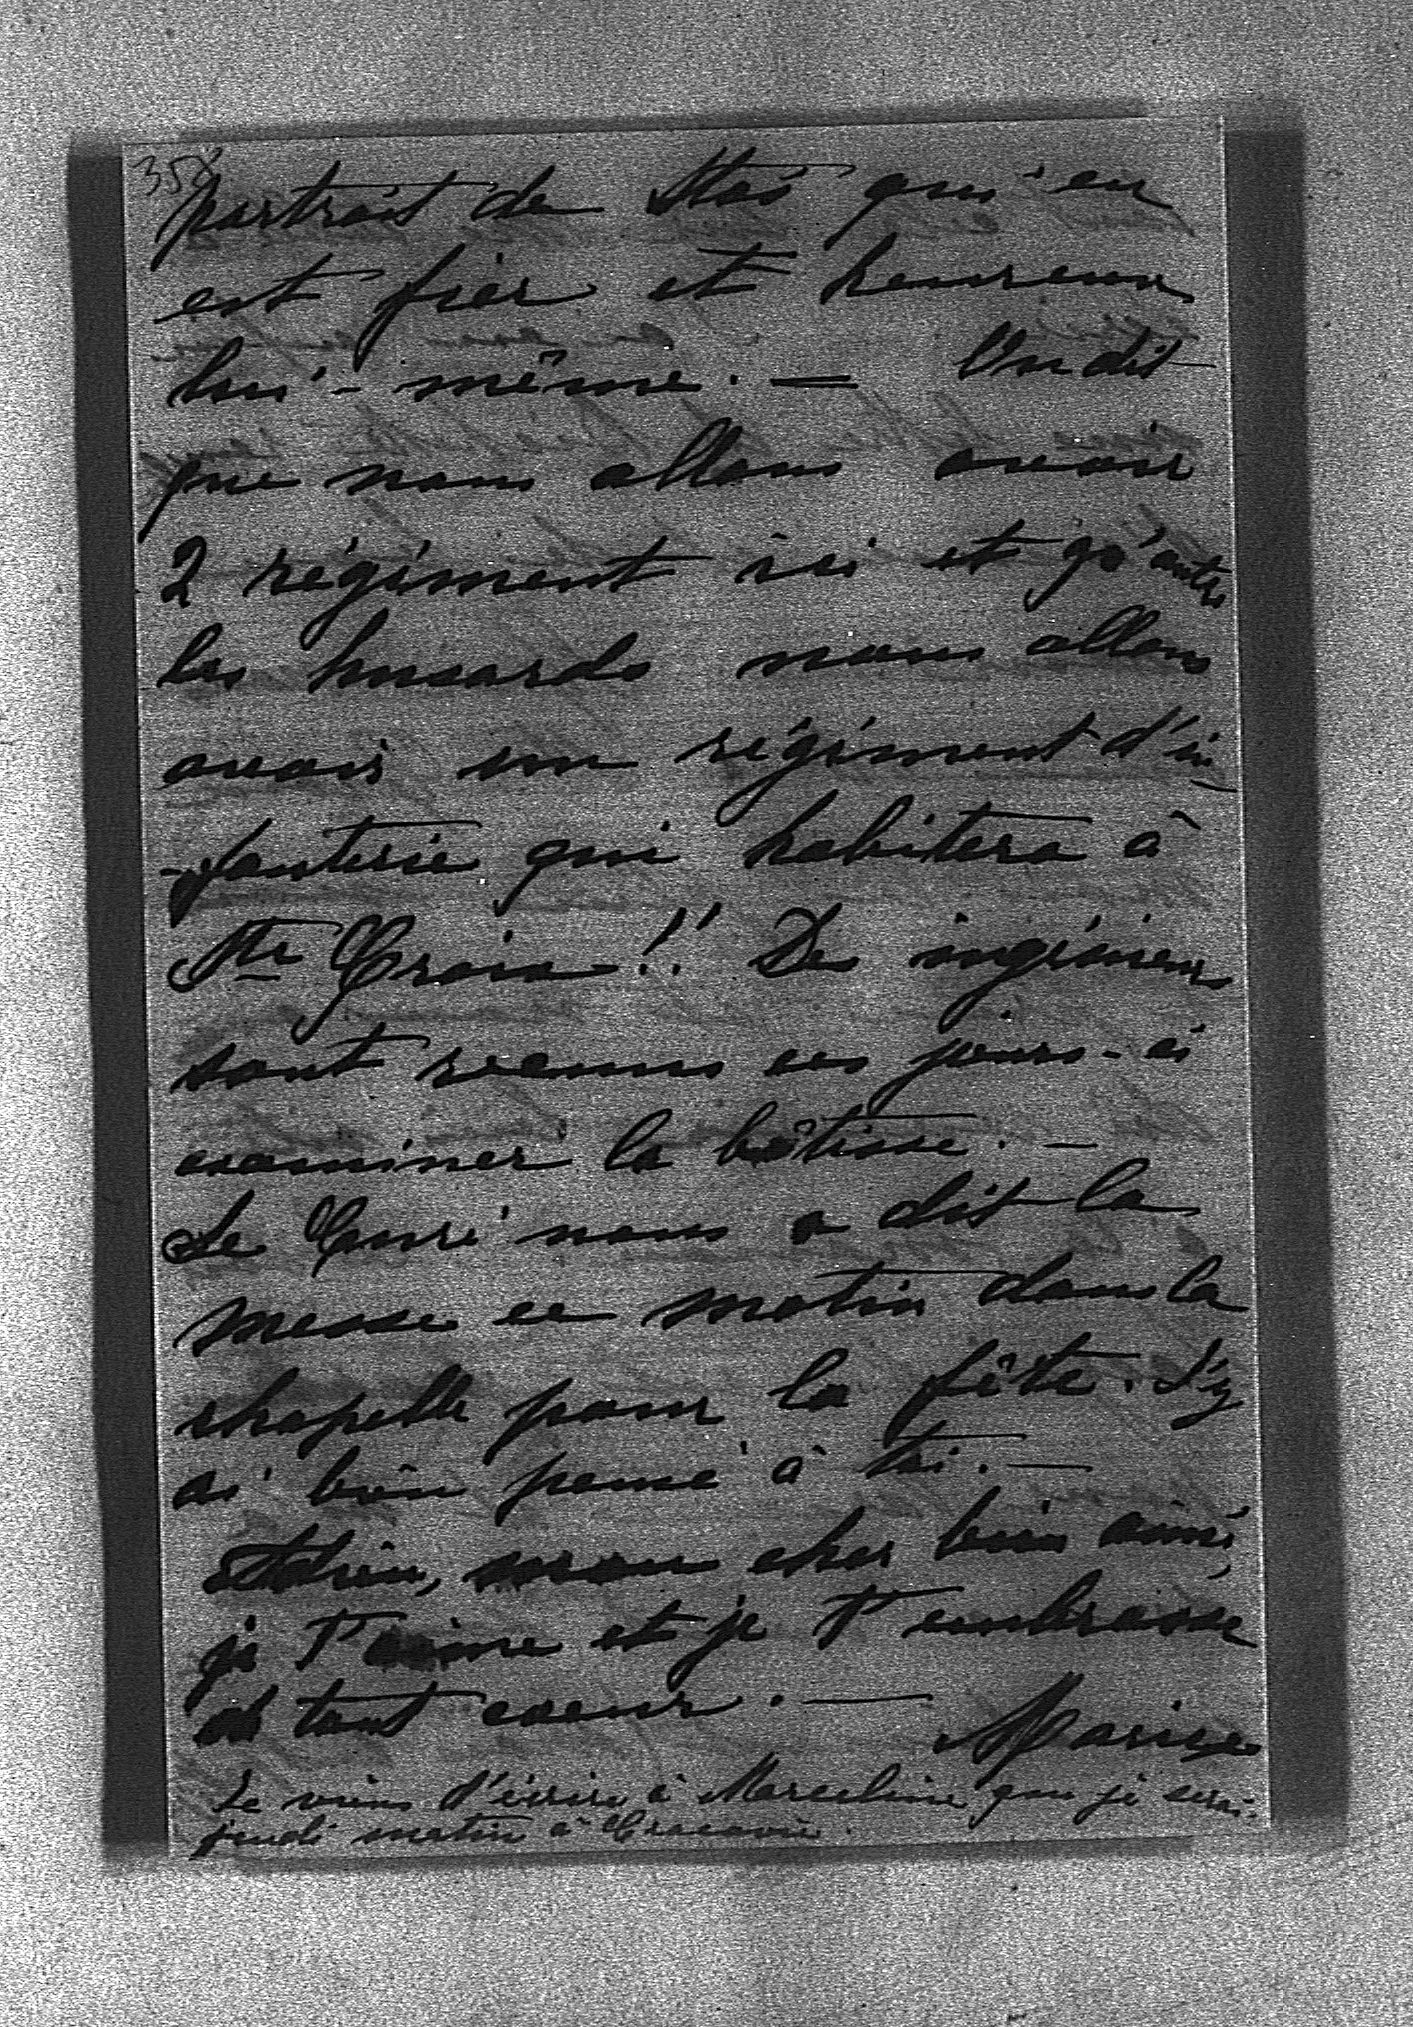 358
portrait de Stas qui en
est fier et heureux
lui-même. — On dit
que nous allons avoir
2 régiment ici et qu'outre
les husards nous allons
avoir un régiment d'in-
-fanterie qui habitera à
Ste Croix!! Des ingénieurs
sont venus ces jours-ci
examiner la bâtisse. —
Le Curé nous a dit la
messe ce matin dans la
chapelle pour la fête. J'y
ai bien pensé à toi. —
Adieu, mon cher bien aimé,
je t'aime et je t'embrasse
de tout coeur. —
Marise
Je viens d'écrire à Marceline que je serai
jeudi matin à Cracovie.